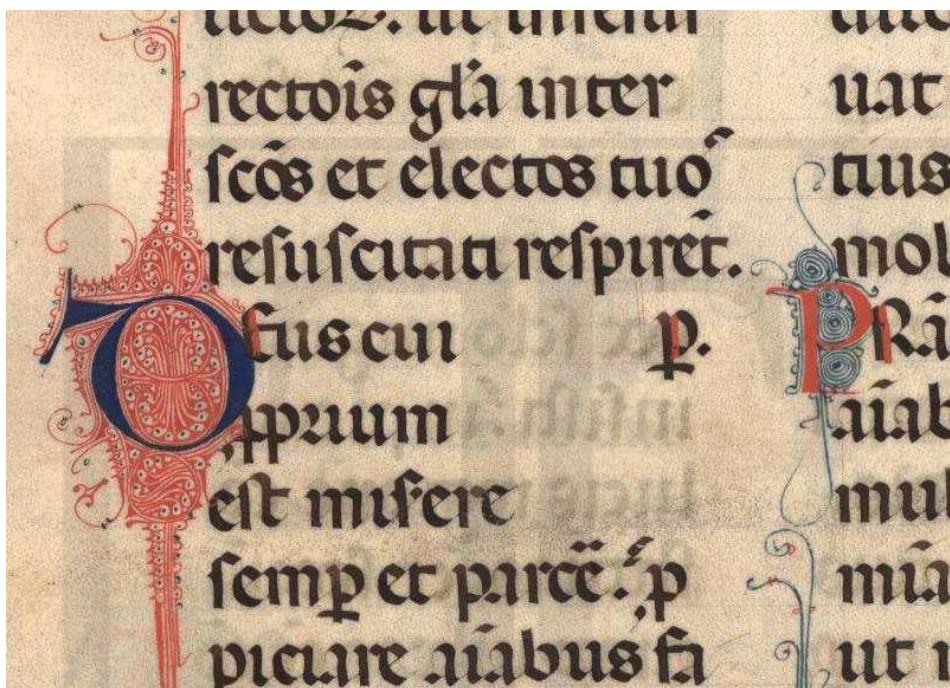 rectoīs gl̄a inter
sc̄os et electos tuoꝰ
resuscitati respirēt.
Deus cui p̱.
ꝓprium
est misere
semꝑ et parce᷑. ꝓ
piciare aīabus fa
uat
tius
mol
PRA
aīab
mul
mīa
ut